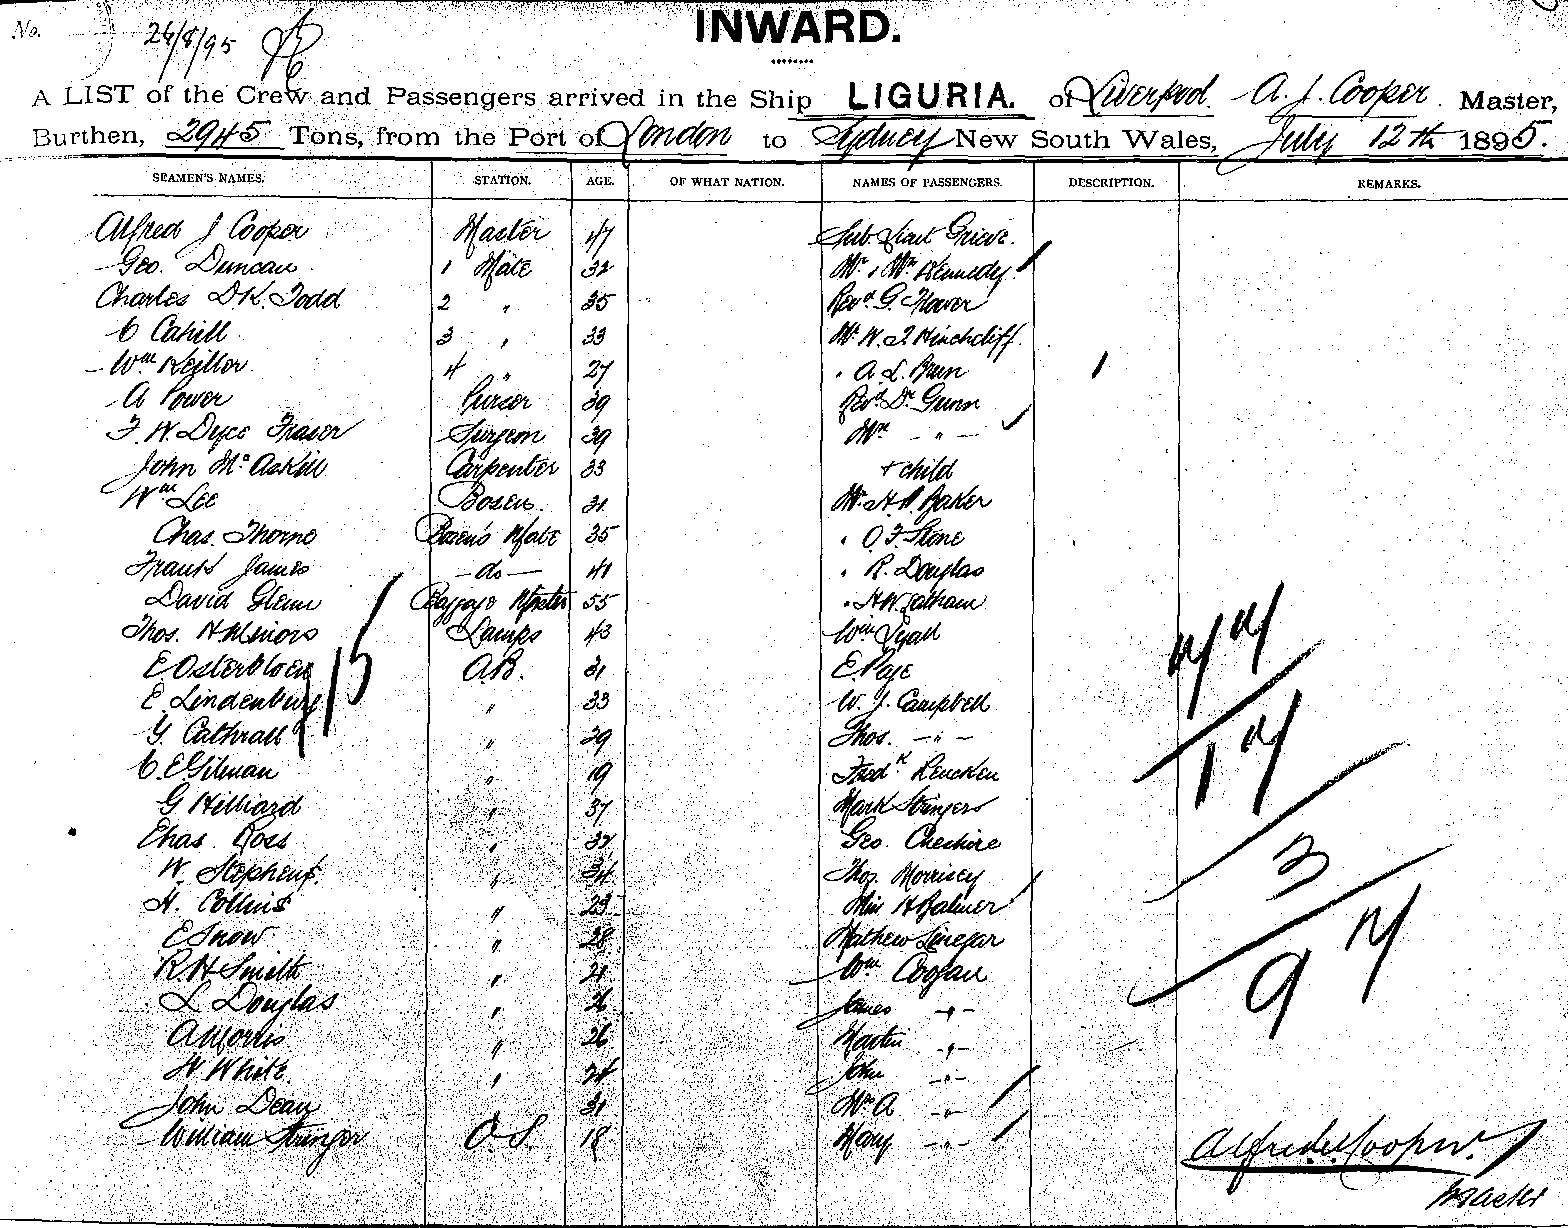 No. 26/8/95
INWARD.
A LIST of the Crew and Passengers arrived in the Ship LIGURIA. of Liverpool. A. J. Cooper Master,
Burthen, 2945 Tons, from the Port of London to Sydney New South Wales, July 12th 1895.
SEAMEN'S NAMES. STATION. AGE. OF WHAT NATION. NAMES OF PASSENGERS. DESCRIPTION. REMARKS.
Alfred J Cooper Master 47 Sub Lieut Grieve.
Geo. Duncan 1 Mate 32 Mr & Mrs Kennedy
Charles D.K. Todd 2 " 35 Revd G. Flower
C Cahill 3 " 33 Mr W. J. Hinchcliff
Wm Keillor 4 " 27 " A. L. Brun
A Power Purser 39 Revd Dr Gunn
F. W. Dyce Fraser Surgeon 39 Mrs - " -
John McAskill Carpenter 33 + child
Wm Lee Bosen 31 Mr H. Baker
Chas. Thorne Bosen's Mate 35 " O. F. Stone
Frank James - do - 41 " R. Douglas
David Glenn Baggage Master 55 " H. W. Latham
Thos. H Minors Lamps 43 Wm Lyall
E. Osterbloem A.B. 31 E. Page
E. Lindenburg " 33 W. J. Campbell
G. Cathrall " 39 Thos. - " -
C. E. Gilman " 19 Fredk Rencken
G Hilliard " 37 Mark Stringers
Chas. Ross " 32 Geo. Cheshire
W. Stephens " 34 Thos Morrisey
H. Collins " 23 Miss H Balmer
E Snow " 28 Mathew Linegar
R H Smith " 21 Wm Coogan
L Douglas " 26 James - " -
A Morris " 26 Martin - " -
W. White " 24 John - " -
John Dean " 31 Mrs A - " -
William Stringer O.S. 18 Mary - " -
15
3
Alfred J. Cooper
Master